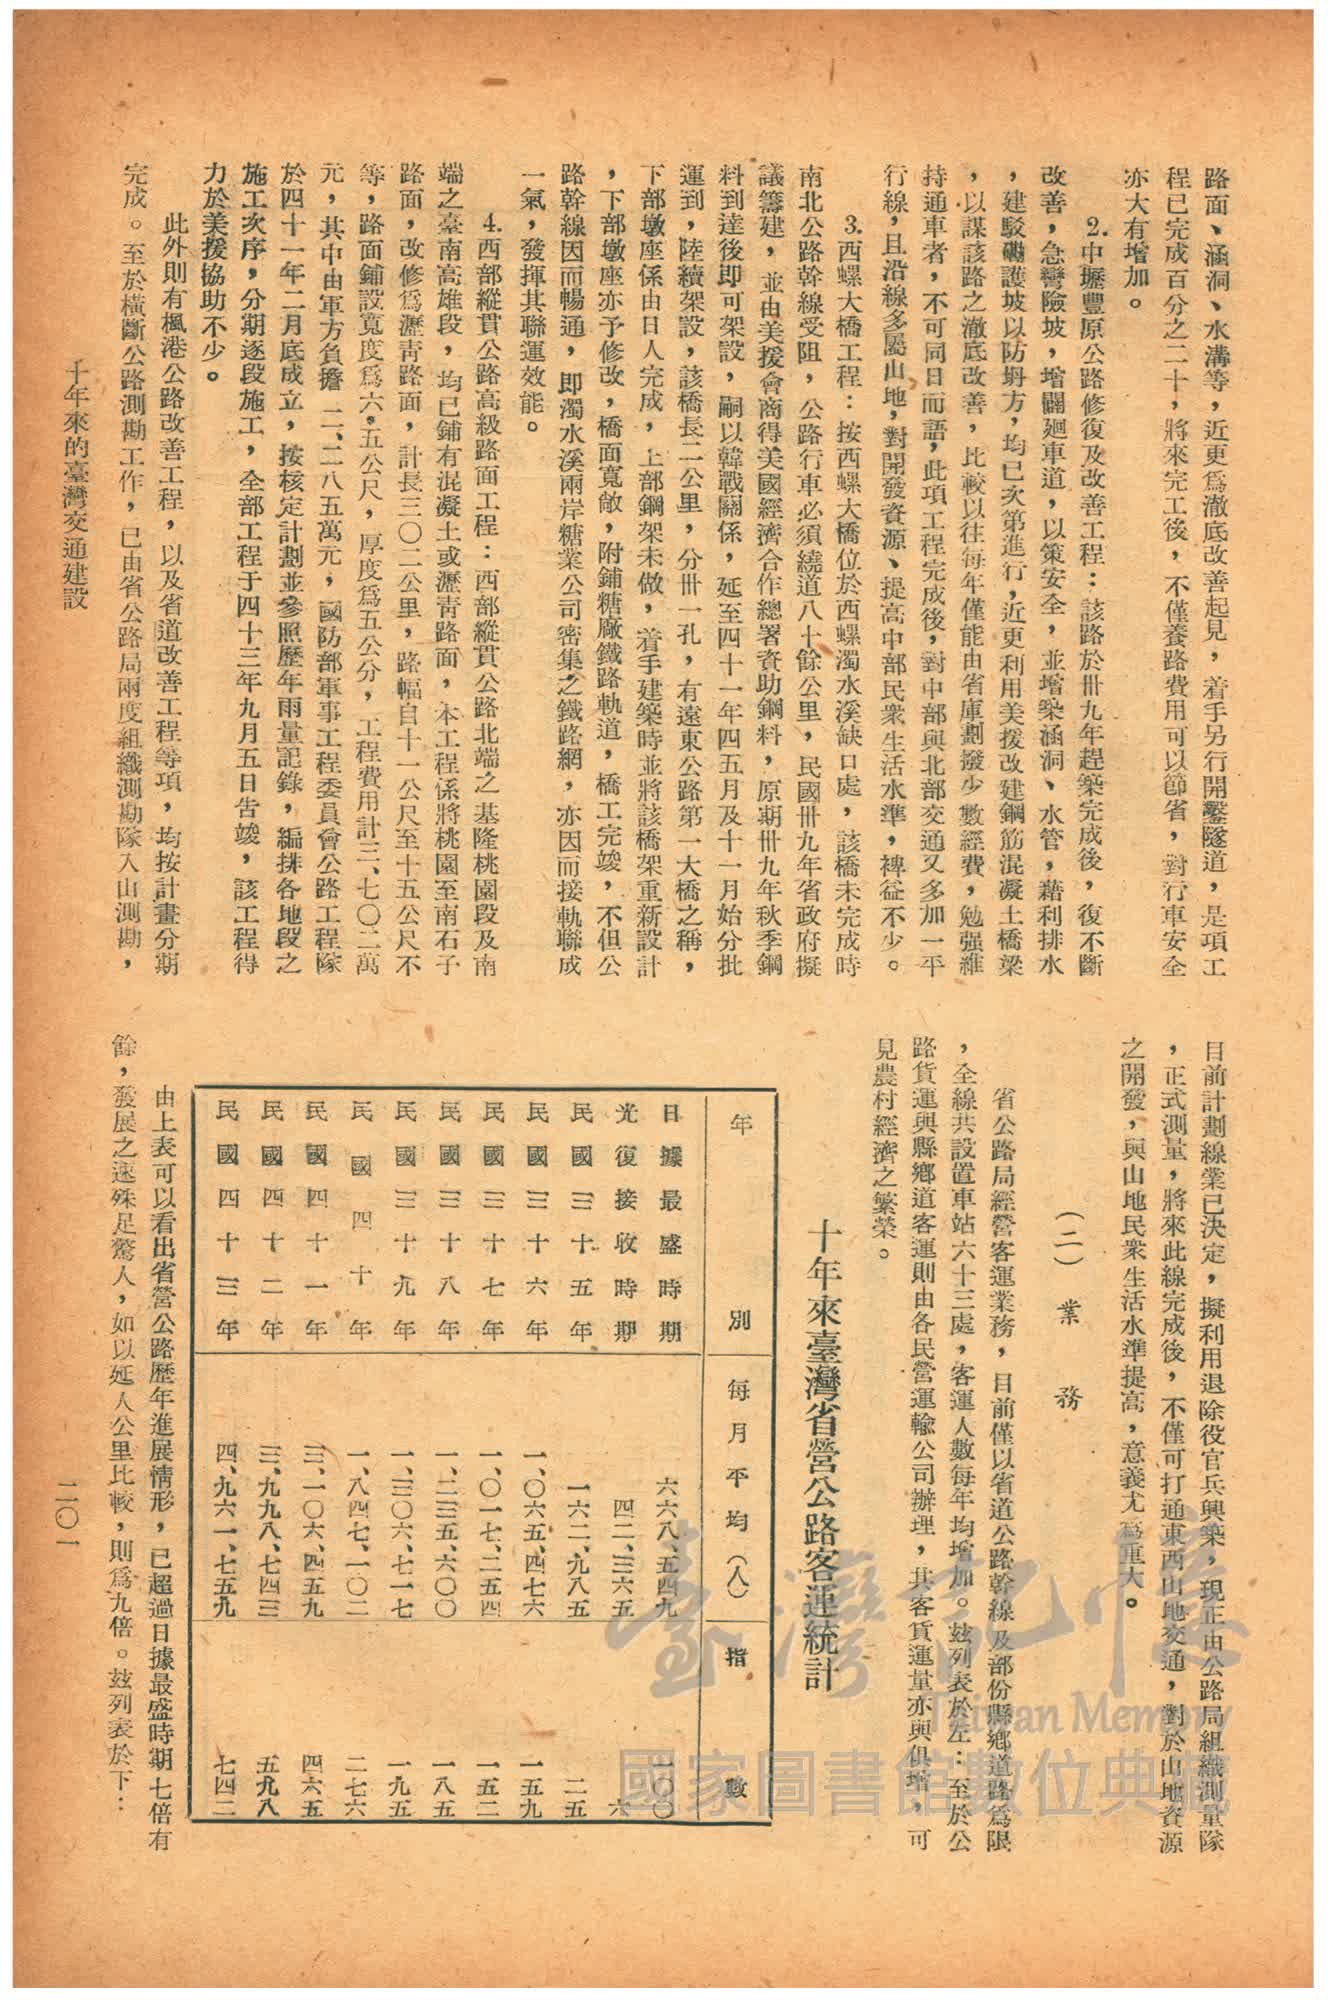 路面、涵洞、水溝等，近更爲澈底改善起見，着手另行開鑿隧道，是項工
程已完成百分之二十，將來完工後，不僅養路費用可以節省，對行車安全
亦大有增加。
2.中壢豐原公路修復及改善工程：該路於卅九年趕築完成後，復不斷
改善，急彎險坡，增闢廻車道，以策安全，並增築涵洞、水管，藉利排水
，建駁磡護坡以防坍方，均已次第進行，近更利用美援改建鋼筋混凝土橋梁
，以謀該路之澈底改善，比較以往每年僅能由省庫劃撥少數經費，勉强維
持通車者，不可同日而語，此項工程完成後，對中部與北部交通又多加一平
行線，且沿線多屬山地，對開發資源、提高中部民衆生活水準，裨益不少。
3.西螺大橋工程：按西螺大橋位於西螺濁水溪缺口處，該橋未完成時
南北公路幹線受阻，公路行車必須繞道八十餘公里，民國卅九年省政府擬
議籌建，並由美援會商得美國經濟合作總署資助鋼料，原期卅九年秋季鋼
料到達後即可架設，嗣以韓戰關係，延至四十一年四五月及十一月始分批
運到，陸續架設，該橋長二公里，分卅一孔，有遠東公路第一大橋之稱，
下部墩座係由日人完成，上部鋼架未做，着手建築時並將該橋架重新設計
，下部墩座亦予修改，橋面寬敞，附鋪糖廠鐵路軌道，橋工完竣，不但公
路幹線因而暢通，即濁水溪兩岸糖業公司密集之鐵路網，亦因而接軌聯成
一氣，發揮其聯運效能。
4.西部縱貫公路高級路面工程：西部縱貫公路北端之基隆桃園段及南
端之臺南高雄段，均已鋪有混凝土或瀝青路面，本工程係將桃園至南石子
路面，改修爲瀝青路面，計長三〇二公里，路幅自十一公尺至十五公尺不
等，路面鋪設寬度爲六，五公尺，厚度爲五公分，工程費用計三、七〇二萬
元，其中由軍方負擔 二、二八五萬元，國防部軍事工程委員會公路工程隊
於四十一年二月底成立，按核定計劃並參照歷年雨量記錄，編排各地段之
施工次序，分期逐段施工，全部工程于四十三年九月五日告竣，該工程得
力於美援協助不少。
此外則有楓港公路改善工程，以及省道改善工程等項，均按計畫分期
完成。至於橫斷公路測勘工作，已由省公路局兩度組織測勘隊入山測勘，
目前計劃線業已決定，擬利用退除役官兵興築，現正由公路局組織測量隊
，正式測量，將來此線完成後，不僅可打通東西山地交通，對於山地資源
之開發，與山地民衆生活水準提高，意義尤爲重大。
（二）業　務
省公路局經營客運業務，目前僅以省道公路幹線及部份縣鄉道路爲限
，全線共設置車站六十三處，客運人數每年均增加。玆列表於左：至於公
路貨運與縣鄉道客運則由各民營運輸公司辦理，其客貨運量亦與俱增，可
見農村經濟之繁榮。
十年來臺灣省營公路客運統計
年　別　每月平均（人）　指　數
日據最盛時期　六六八、五四九　一〇〇
光復接收時期　四二、三六五　六
民國三十五年　一六二、九八五　二五
民國三十六年　一、〇六五、四七六　一五九
民國三十七年　一、〇一七、二五四　一五二
民國三十八年　一、二三五、六〇〇　一八五
民國三十九年　一、三〇六、七一七　一九五
民國四十年　一、八四七、一〇二　二七六
民國四十一年　三、一〇六、四五九　四六五
民國四十二年　三、九九八、七四三　五九八
民國四十三年　四、九六一、七五九　七四二
由上表可以看出省營公路歷年進展情形，已超過日據最盛時期七倍有
餘，發展之速殊足驚人，如以延人公里比較，則爲九倍。玆列表於下：
十年來的臺灣交通建設
二〇一
臺灣記憶
Taiwan Memory
國家圖書館數位典藏